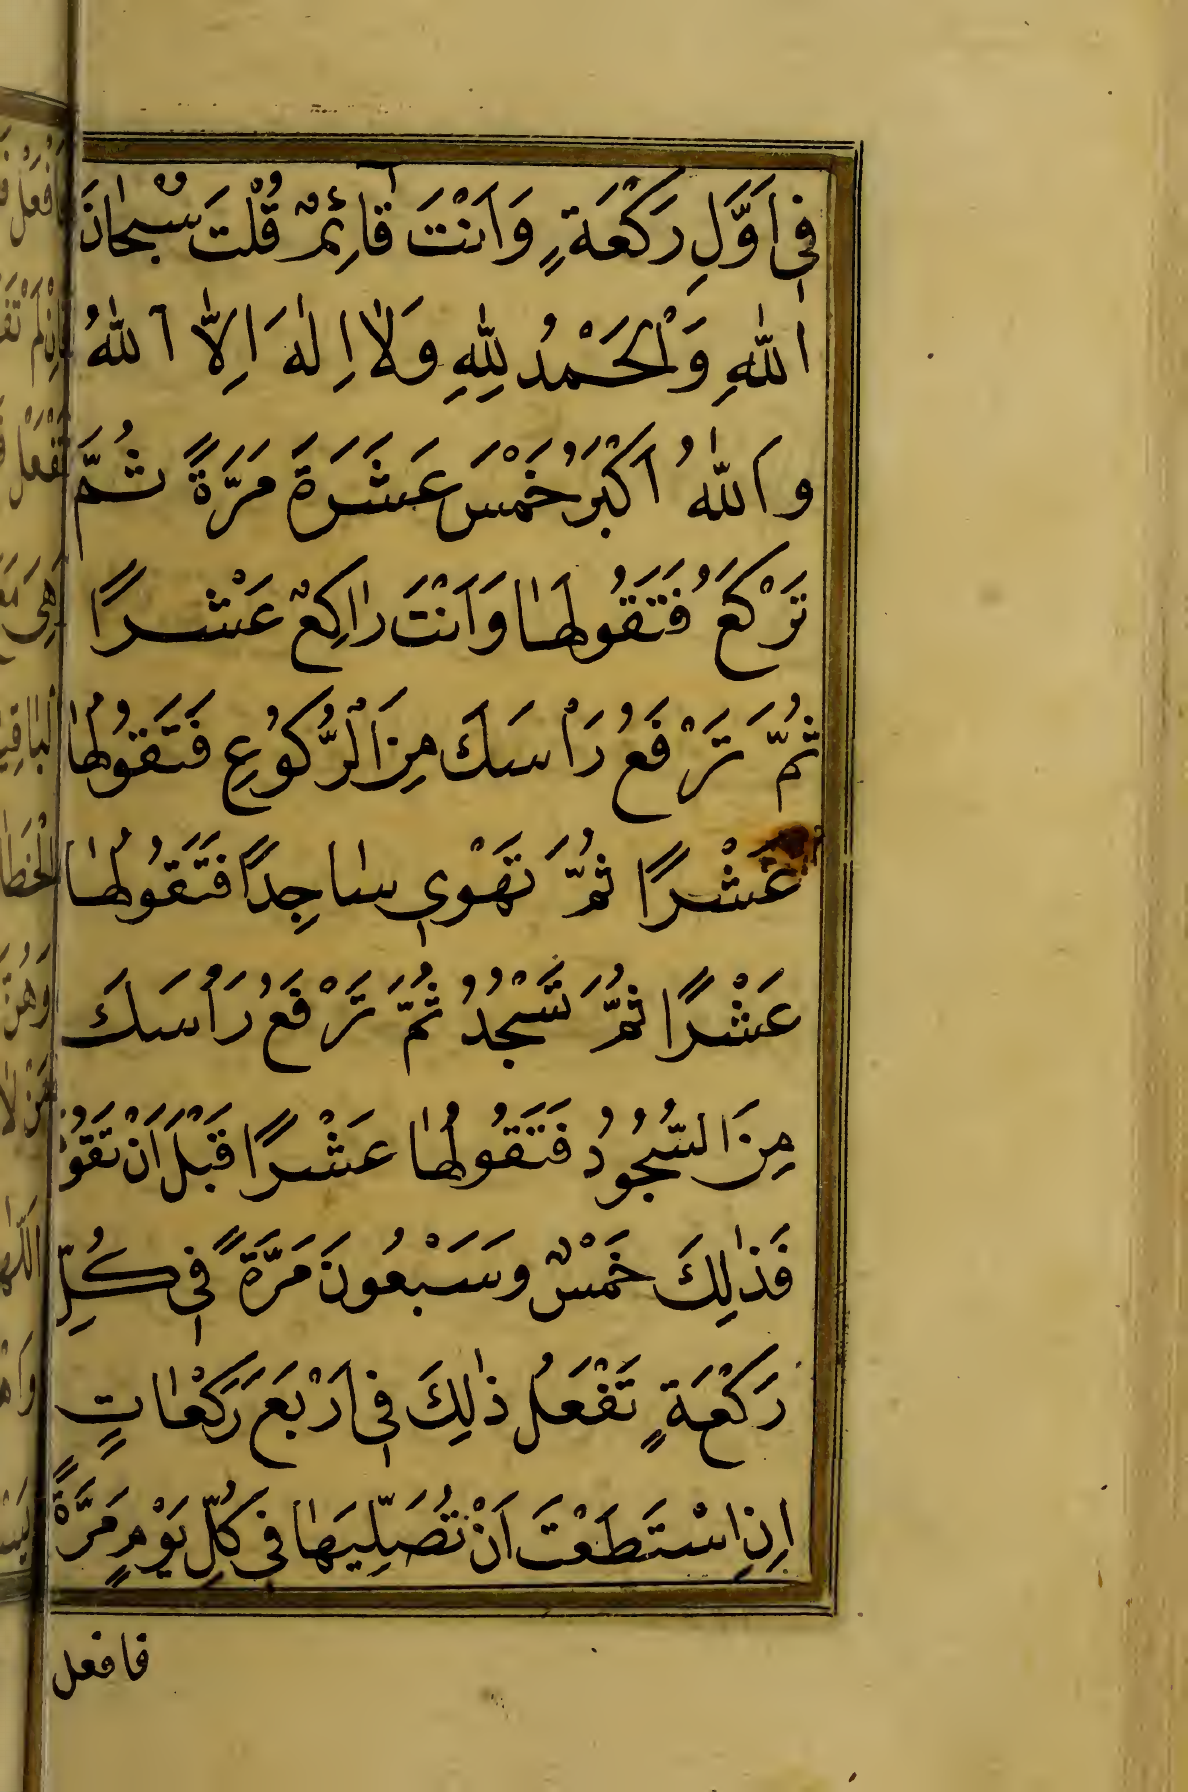 فِى اَوَّلِ رَكْعَةٍ وَاَنْتَ قَائِمٌ قُلْتَ سُبْحَانَ
اللّٰهِ وَالْحَمْدُ لِلّٰهِ وَلَا اِلٰهَ اِلَّا اللّٰهُ
وَاللّٰهُ اَكْبَرُ خَمْسَ عَشَرَةَ مَرَّةً ثُمَّ
تَرْكَعُ فَتَقُولُهَا وَاَنْتَ رَاكِعٌ عَشْرًا
ثُمَّ تَرْفَعُ رَأْسَكَ مِنَ الرُّكُوعِ فَتَقُولُهَا
عَشْرًا ثُمَّ تَهْوِى سَاجِدًا فَتَقُولُهَا
عَشْرًا ثُمَّ تَسْجُدُ ثُمَّ تَرْفَعُ رَأْسَكَ
مِنَ السُّجُودُ فَتَقُولُهَا عَشْرًا قَبْلَ اَنْ تَقُومَ
فَذٰلِكَ خَمْسٌ وَسَبْعُونَ مَرَّةً فِى كُلِّ
رَكْعَةٍ تَفْعَلُ ذٰلِكَ فِى اَرْبَعَ رَكْعَاتٍ
اِنِ اسْتَطَعْتَ اَنْ تُصَلِّيَهَا فِى كُلِّ يَوْمٍ مَرَّةً
فافعل